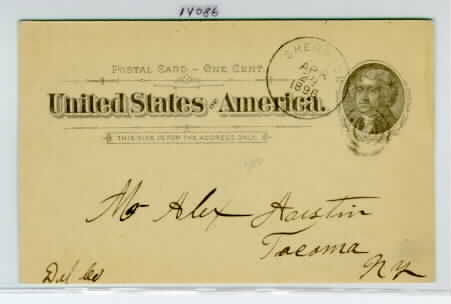 14086
POSTAL CARD – ONE CENT.
United States of America.
THIS SIDE IS FOR THE ADDRESS ONLY.
APR
Mr Alex Austin
Tacoma
Del Co
N Y